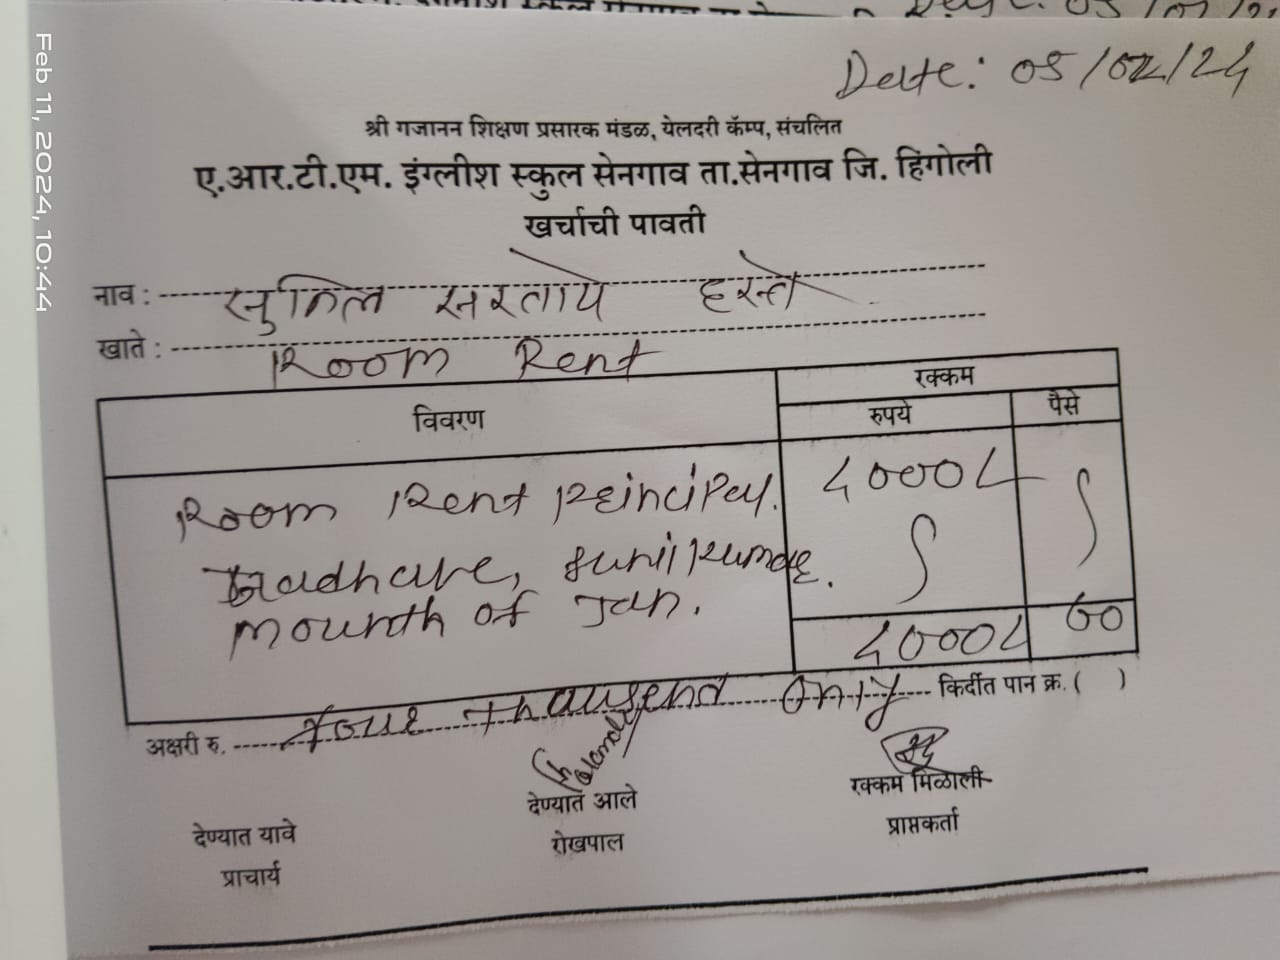 Feb 11, 2024, 10:44
Date: 05/02/24
श्री गजानन शिक्षण प्रसारक मंडळ, येलदरी कॅम्प, संचलित
ए.आर.टी.एम. इंग्लीश स्कुल सेनगाव ता.सेनगाव जि. हिंगोली
खर्चाची पावती
नाव : सुनिल हस्ते
खाते : Room Rent
विवरण रक्कम
रुपये पैसे
Room Rent 4000
mounth of Jan.
4000 00
अक्षरी रु. Four Thausend Only किर्दीत पान क्र. ( )
देण्यात यावे देण्यात आले रक्कम मिळाली
प्राचार्य रोखपाल प्राप्तकर्ता